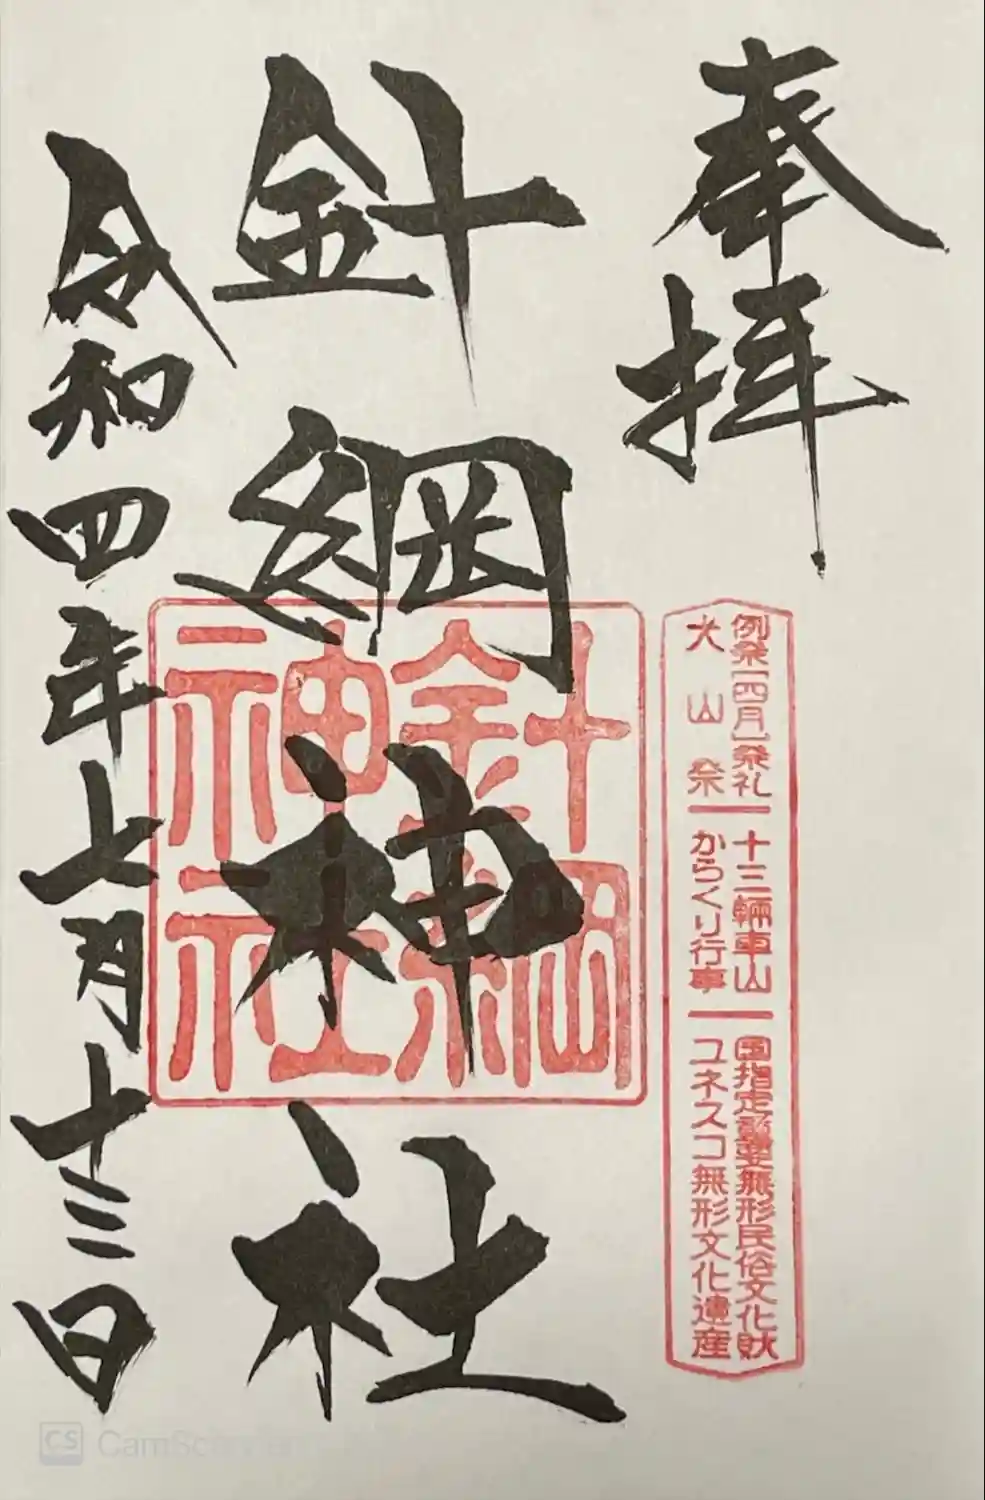 奉拝
例祭(四月)祭礼 十三輛車山 国指定重要無形民俗文化財
犬山祭 からくり行事 ユネスコ無形文化遺産
針綱神社
針綱
神社
令和四年七月十三日
CS CamScanner